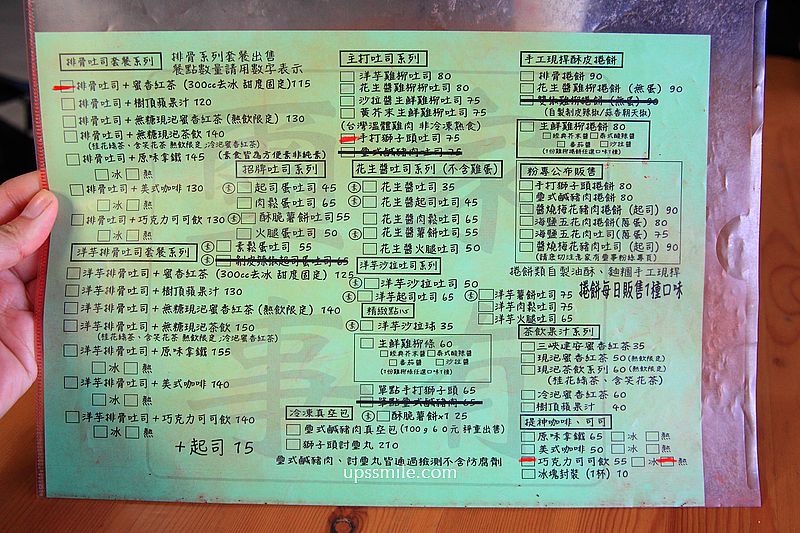 排骨吐司套餐系列
排骨系列套餐出售
餐點數量請用數字表示
排骨吐司+蜜香紅茶 (300cc去冰 甜度固定)115
排骨吐司+樹頂蘋果汁 120
排骨吐司+無糖現泡蜜香紅茶 (熱飲限定) 130
排骨吐司+無糖現泡茶飲 140
(桂花綠茶、含笑花茶 熱飲限定,冷泡蜜香紅茶)
排骨吐司+原味拿鐵 145
冰 熱
(素食皆為方便素非純素)
排骨吐司+美式咖啡 130
冰 熱
排骨吐司+巧克力可可飲 130
冰 熱
招牌吐司系列
起司蛋吐司 45
肉鬆蛋吐司 65
酥脆薯餅蛋吐司 55
火腿蛋吐司 50
素鬆蛋吐司 55
洋芋排骨吐司套餐系列
洋芋排骨吐司+蜜香紅茶 (300cc去冰 甜度固定) 125
洋芋排骨吐司+樹頂蘋果汁 130
洋芋排骨吐司+無糖現泡蜜香紅茶 (熱飲限定) 140
洋芋排骨吐司+無糖現泡茶飲 150
(桂花綠茶、含笑花茶 熱飲限定,冷泡蜜香紅茶)
洋芋排骨吐司+原味拿鐵 155
冰 熱
洋芋排骨吐司+美式咖啡 140
冰 熱
洋芋排骨吐司+巧克力可可飲 140
冰 熱
+起司 15
主打吐司系列
洋芋雞柳吐司 80
花生醬雞柳吐司 80
沙拉醬生鮮雞柳吐司 75
黃芥末生鮮雞柳吐司 75
(台灣溫體雞肉 非冷凍熟食)
手打獅子頭吐司 75
疊式鹹豬肉吐司 75
花生醬吐司系列 (不含雞蛋)
花生醬吐司 35
花生醬起司吐司 45
花生醬肉鬆吐司 55
花生醬薯餅吐司 50
花生醬火腿吐司 50
洋芋沙拉吐司系列
洋芋沙拉吐司 50
洋芋起司吐司 65
洋芋薯餅吐司 75
洋芋肉鬆吐司 75
洋芋火腿吐司 65
精緻點心
洋芋沙拉球 35
生鮮雞柳條 60
經典芥末醬 泰式酸辣醬
番茄醬 沙拉醬
(1份雞柳條任選口味1種)
單點手打獅子頭 65
單點疊式鹹豬肉 65
酥脆薯餅x1 25
冷凍真空包
疊式鹹豬肉真空包 (100g 60元 秤重出售)
獅子頭討疊丸 210
疊式鹹豬肉、討疊丸皆通過檢測不含防腐劑
手工現捍酥皮捲餅
排骨捲餅 90
花生醬雞柳捲餅 (無蛋) 90
(自製剝皮辣椒/蒜香朝天椒)
生鮮雞柳捲餅 80
經典芥末醬 泰式酸辣醬
番茄醬 沙拉醬
(1份雞柳捲餅任選口味1種)
粉專公布販售
手打獅子頭捲餅 80
疊式鹹豬肉捲餅 80
醬燒梅花豬肉捲餅 (起司) 90
海鹽五花肉捲餅 (落蛋) 90
海鹽五花肉吐司(落蛋) 75
醬燒梅花豬肉吐司(起司) 90
(請密切注意家有疊事粉絲專頁)
捲餅類自製油酥、麵糰手工現捍
捲餅每日販售1種口味
茶飲果汁系列
三峽建安蜜香紅茶 35
現泡蜜香紅茶 50 (熱飲限定)
現泡茶飲系列 60 (熱飲限定)
(桂花綠茶、含笑花茶)
冷泡蜜香紅茶 60
樹頂蘋果汁 40
提神咖啡、可可
原味拿鐵 65 冰 熱
美式咖啡 50 冰 熱
巧克力可可飲 55 冰 熱
冰塊封裝 (1杯) 10
upssmile.com